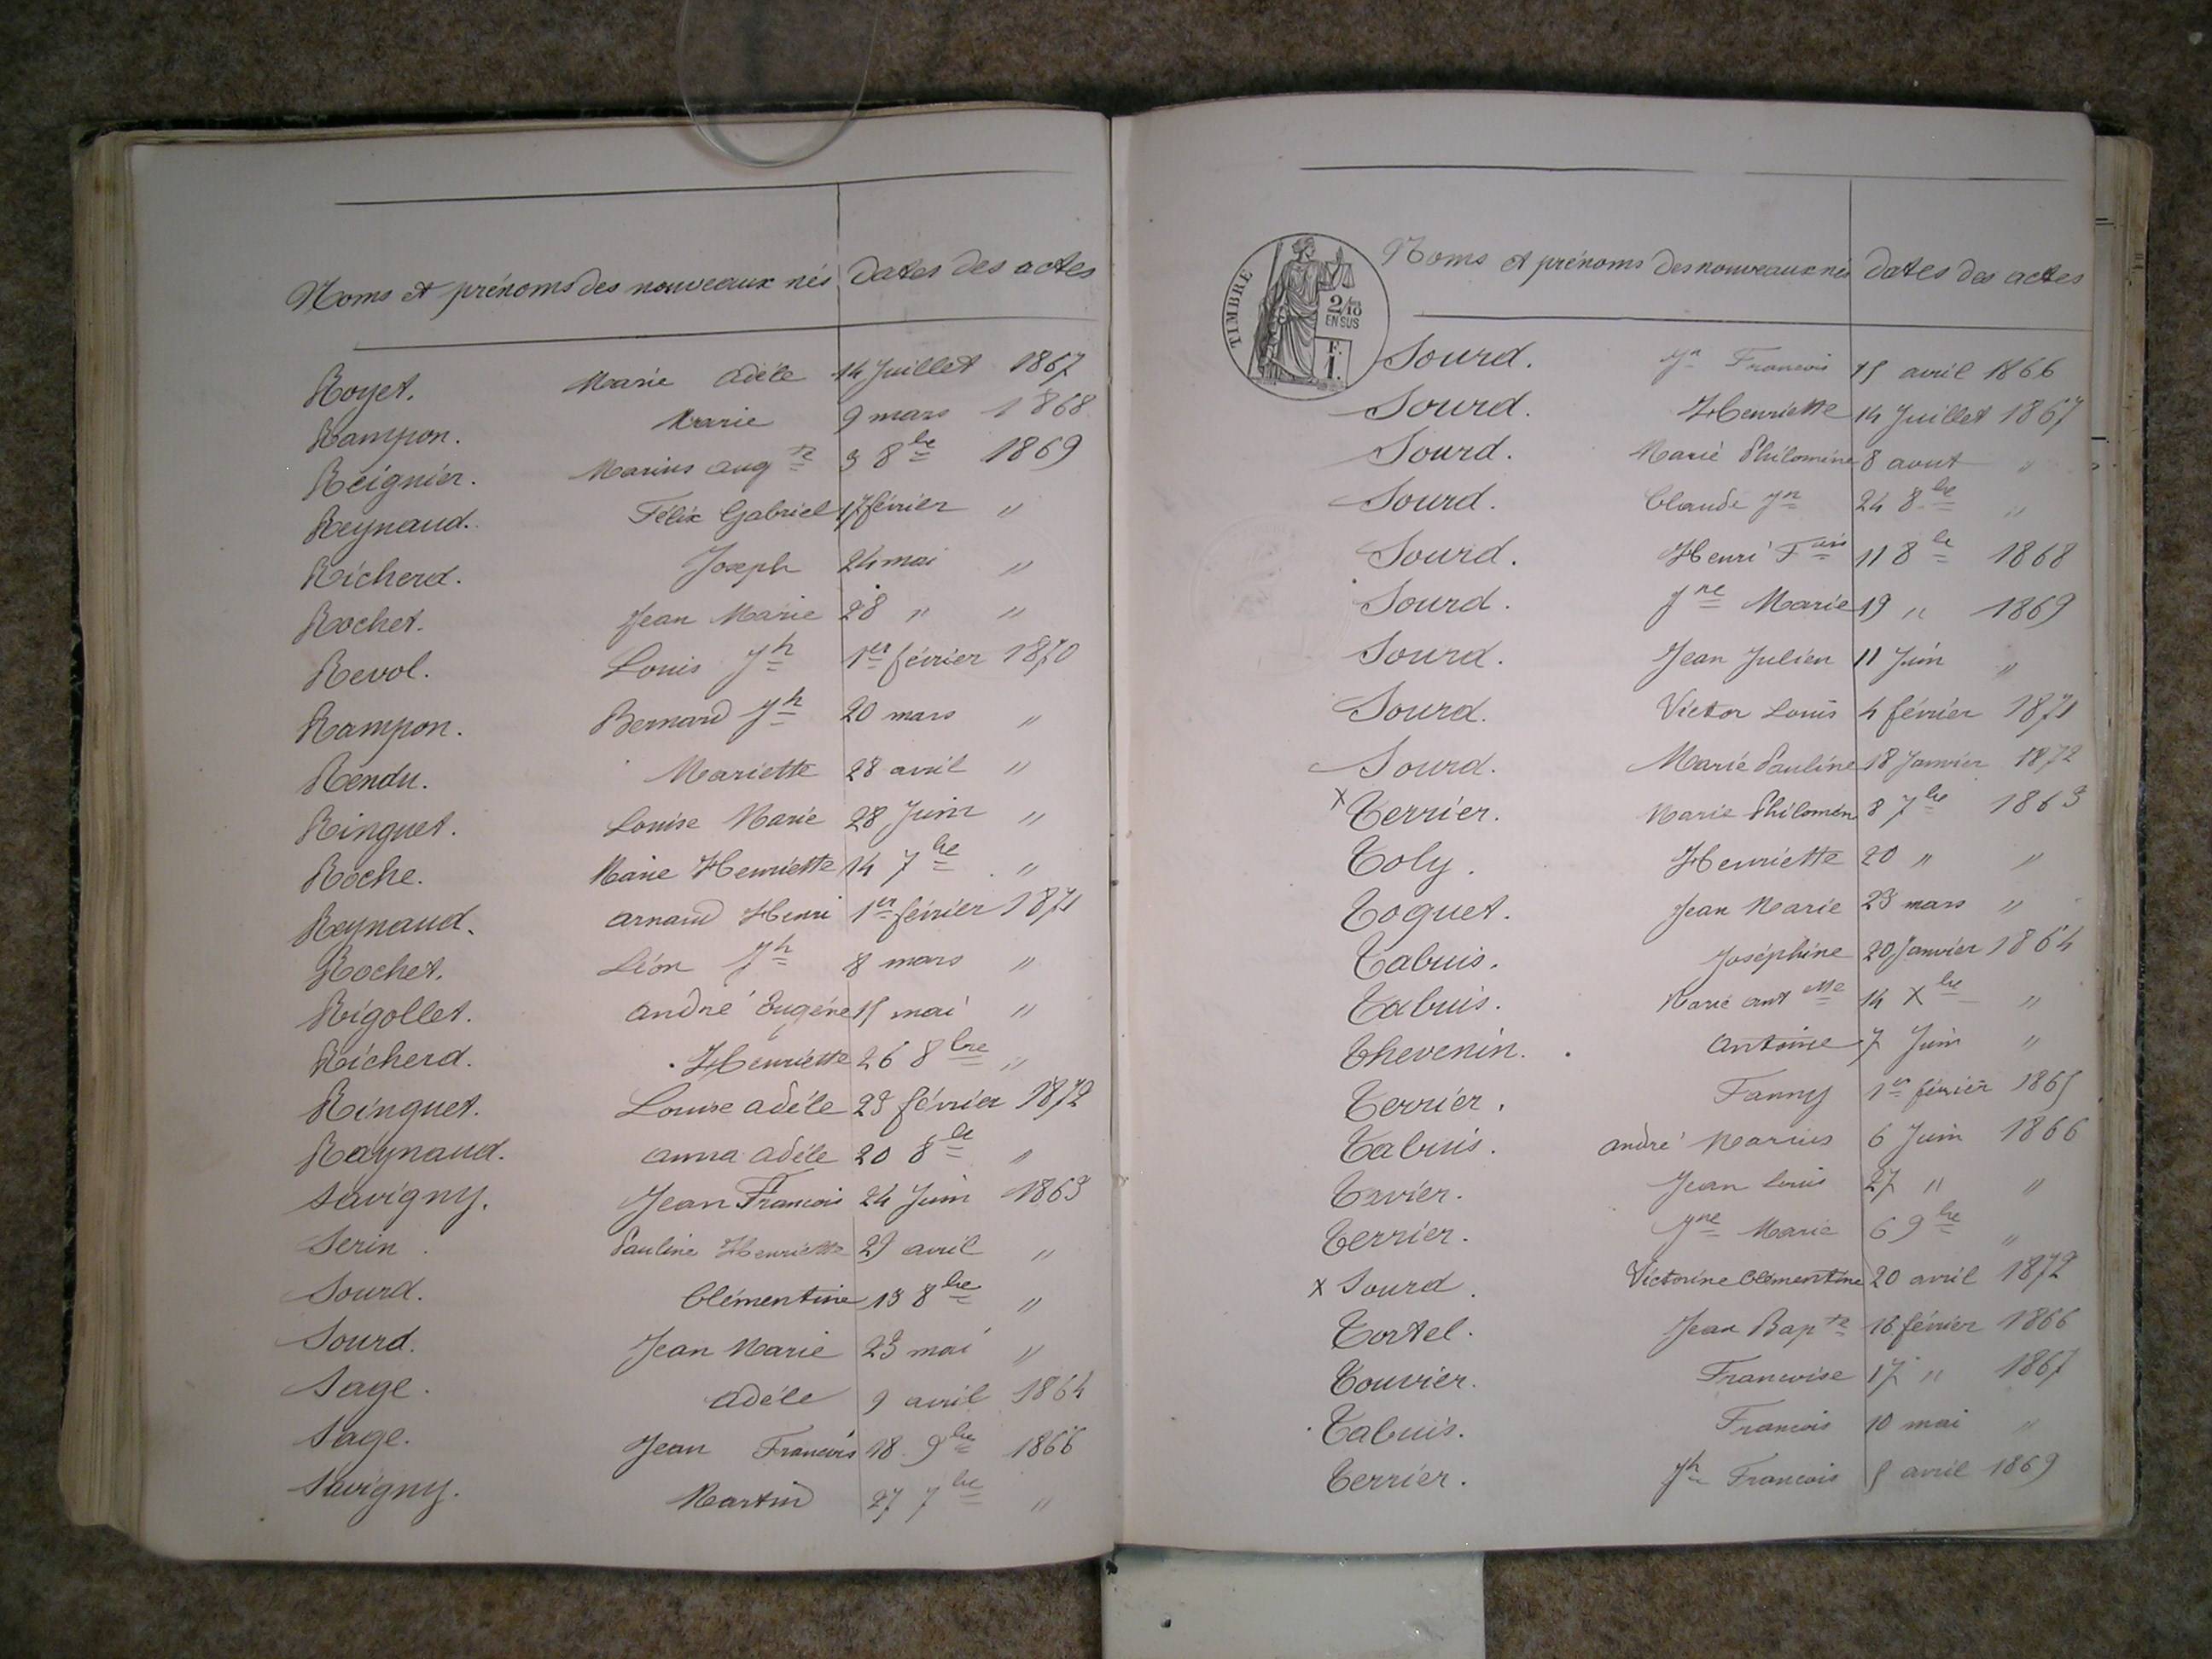 Noms et prénoms des nouveaux nés dates des actes
Royet. Marie adèle 14 Juillet 1867
Rampon. Marie 9 mars 1868
Reignier. Marius aug te 3 8bre 1869
Reynaud. Félix Gabriel 17 février "
Richerd. Joseph 24 mai "
Rochet. Jean Marie 28 " "
Revol. Louis Jh 1er février 1870
Rampon. Bernard Jh 20 mars "
Rendu. Mariette 28 avril "
Ringuet. Louise Marie 28 Juin "
Roche. Marie Henriette 14 7bre "
Reynaud. arnaud Henri 1er février 1871
Rochet. Léon Jh 8 mars "
Rigollet. andré Eugène 15 mai "
Richerd. Henriette 26 8bre "
Ringuet. Louise adèle 23 février 1872
Raynaud. anna adèle 20 8bre "
Savigny. Jean Francois 24 Juin 1863
Serin. Pauline Henriette 29 avril "
Sourd. Clémentine 13 8bre "
Sourd. Jean Marie 23 mai "
Sage. adèle 9 avril 1864
Sage. Jean Francois 18 9bre 1866
Savigny. Martin 27 7bre "
TIMBRE
2/10
EN SUS
F.
1.
Noms et prénoms des nouveaux nés dates des actes
Sourd. Jn Francois 15 avril 1866
Sourd. Henriette 14 Juillet 1867
Sourd. Marie Philomène 8 aout "
Sourd. Claude Jn 24 8bre "
Sourd. Henri Fois 11 8bre 1868
Sourd. Jne Marie 19 " 1869
Sourd. Jean Julien 11 Juin "
Sourd. Victor Louis 4 février 1871
Sourd. Marie Pauline 18 Janvier 1872
x Terrier. Marie Philomène 8 7bre 1863
Toly. Henriette 20 " "
Toquet. Jean Marie 23 mars "
Tabuis. Joséphine 20 Janvier 1864
Tabuis. Marie ant tte 14 Xbre "
Thevenin. antoine 7 Juin "
Terrier. Fanny 1er février 1865
Tabuis. andré Marius 6 Juin 1866
Tavier. Jean Louis 27 " "
Terrier. Jne Marie 6 9bre "
x Sourd. Victorine Clémentine 20 avril 1872
Tortel. Jean Bapte 16 février 1866
Touvier. Francoise 17 " 1867
Tabuis. Francois 10 mai "
Terrier. Jh Francois 5 avril 1869